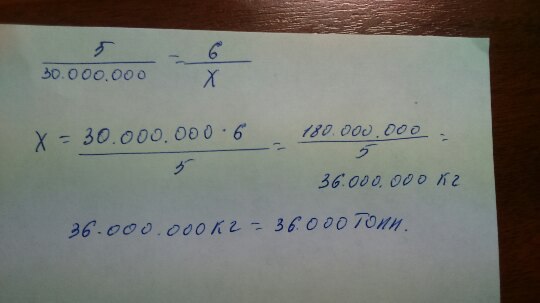 5/30.000.000 = 6/X
X = 30.000.000 · 6/5 = 180.000.000/5 =
36.000.000 кг
36.000.000 кг = 36.000 тонн.